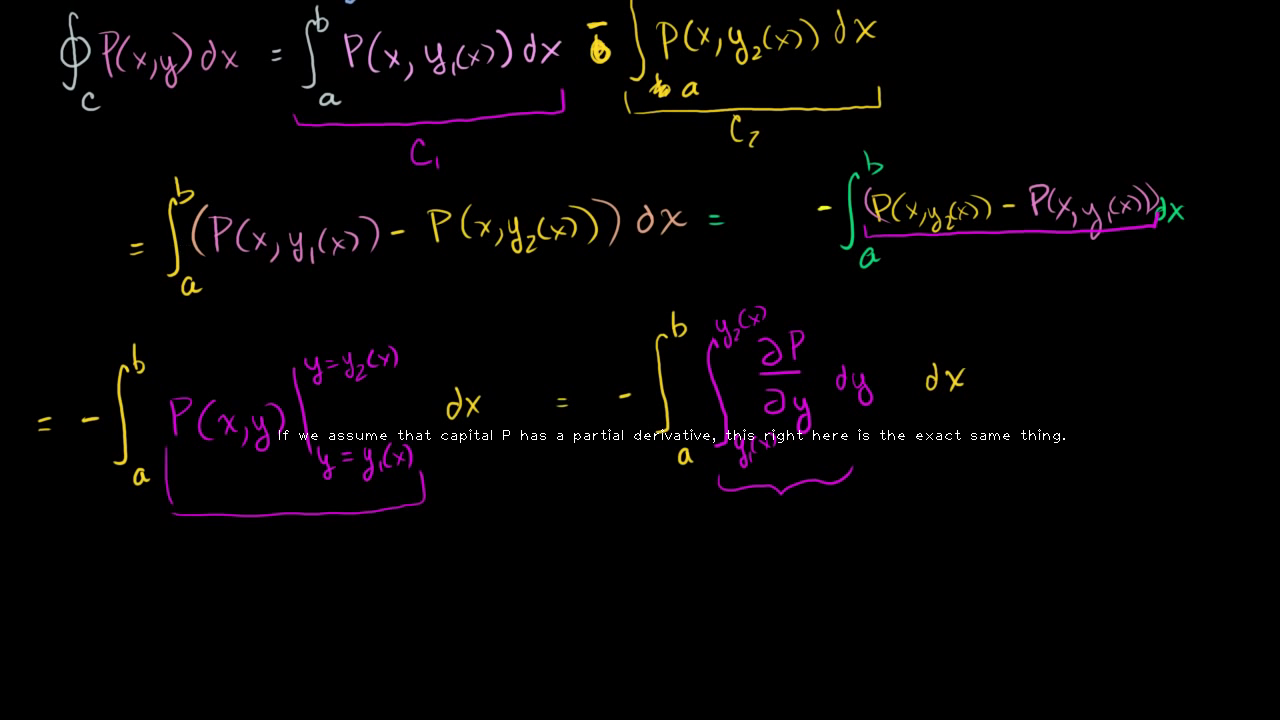 ∮_C P(x,y) dx = ∫_a^b P(x, y₁(x)) dx - ∫_a P(x, y₂(x)) dx
C₁ C₂
= ∫_a^b (P(x, y₁(x)) - P(x, y₂(x))) dx = - ∫_a^b (P(x, y₂(x)) - P(x, y₁(x))) dx
= - ∫_a^b P(x,y) |_{y = y₁(x)}^{y = y₂(x)} dx = - ∫_a^b ∫_{y₁(x)}^{y₂(x)} ∂P/∂y dy dx
If we assume that capital P has a partial derivative, this right here is the exact same thing.